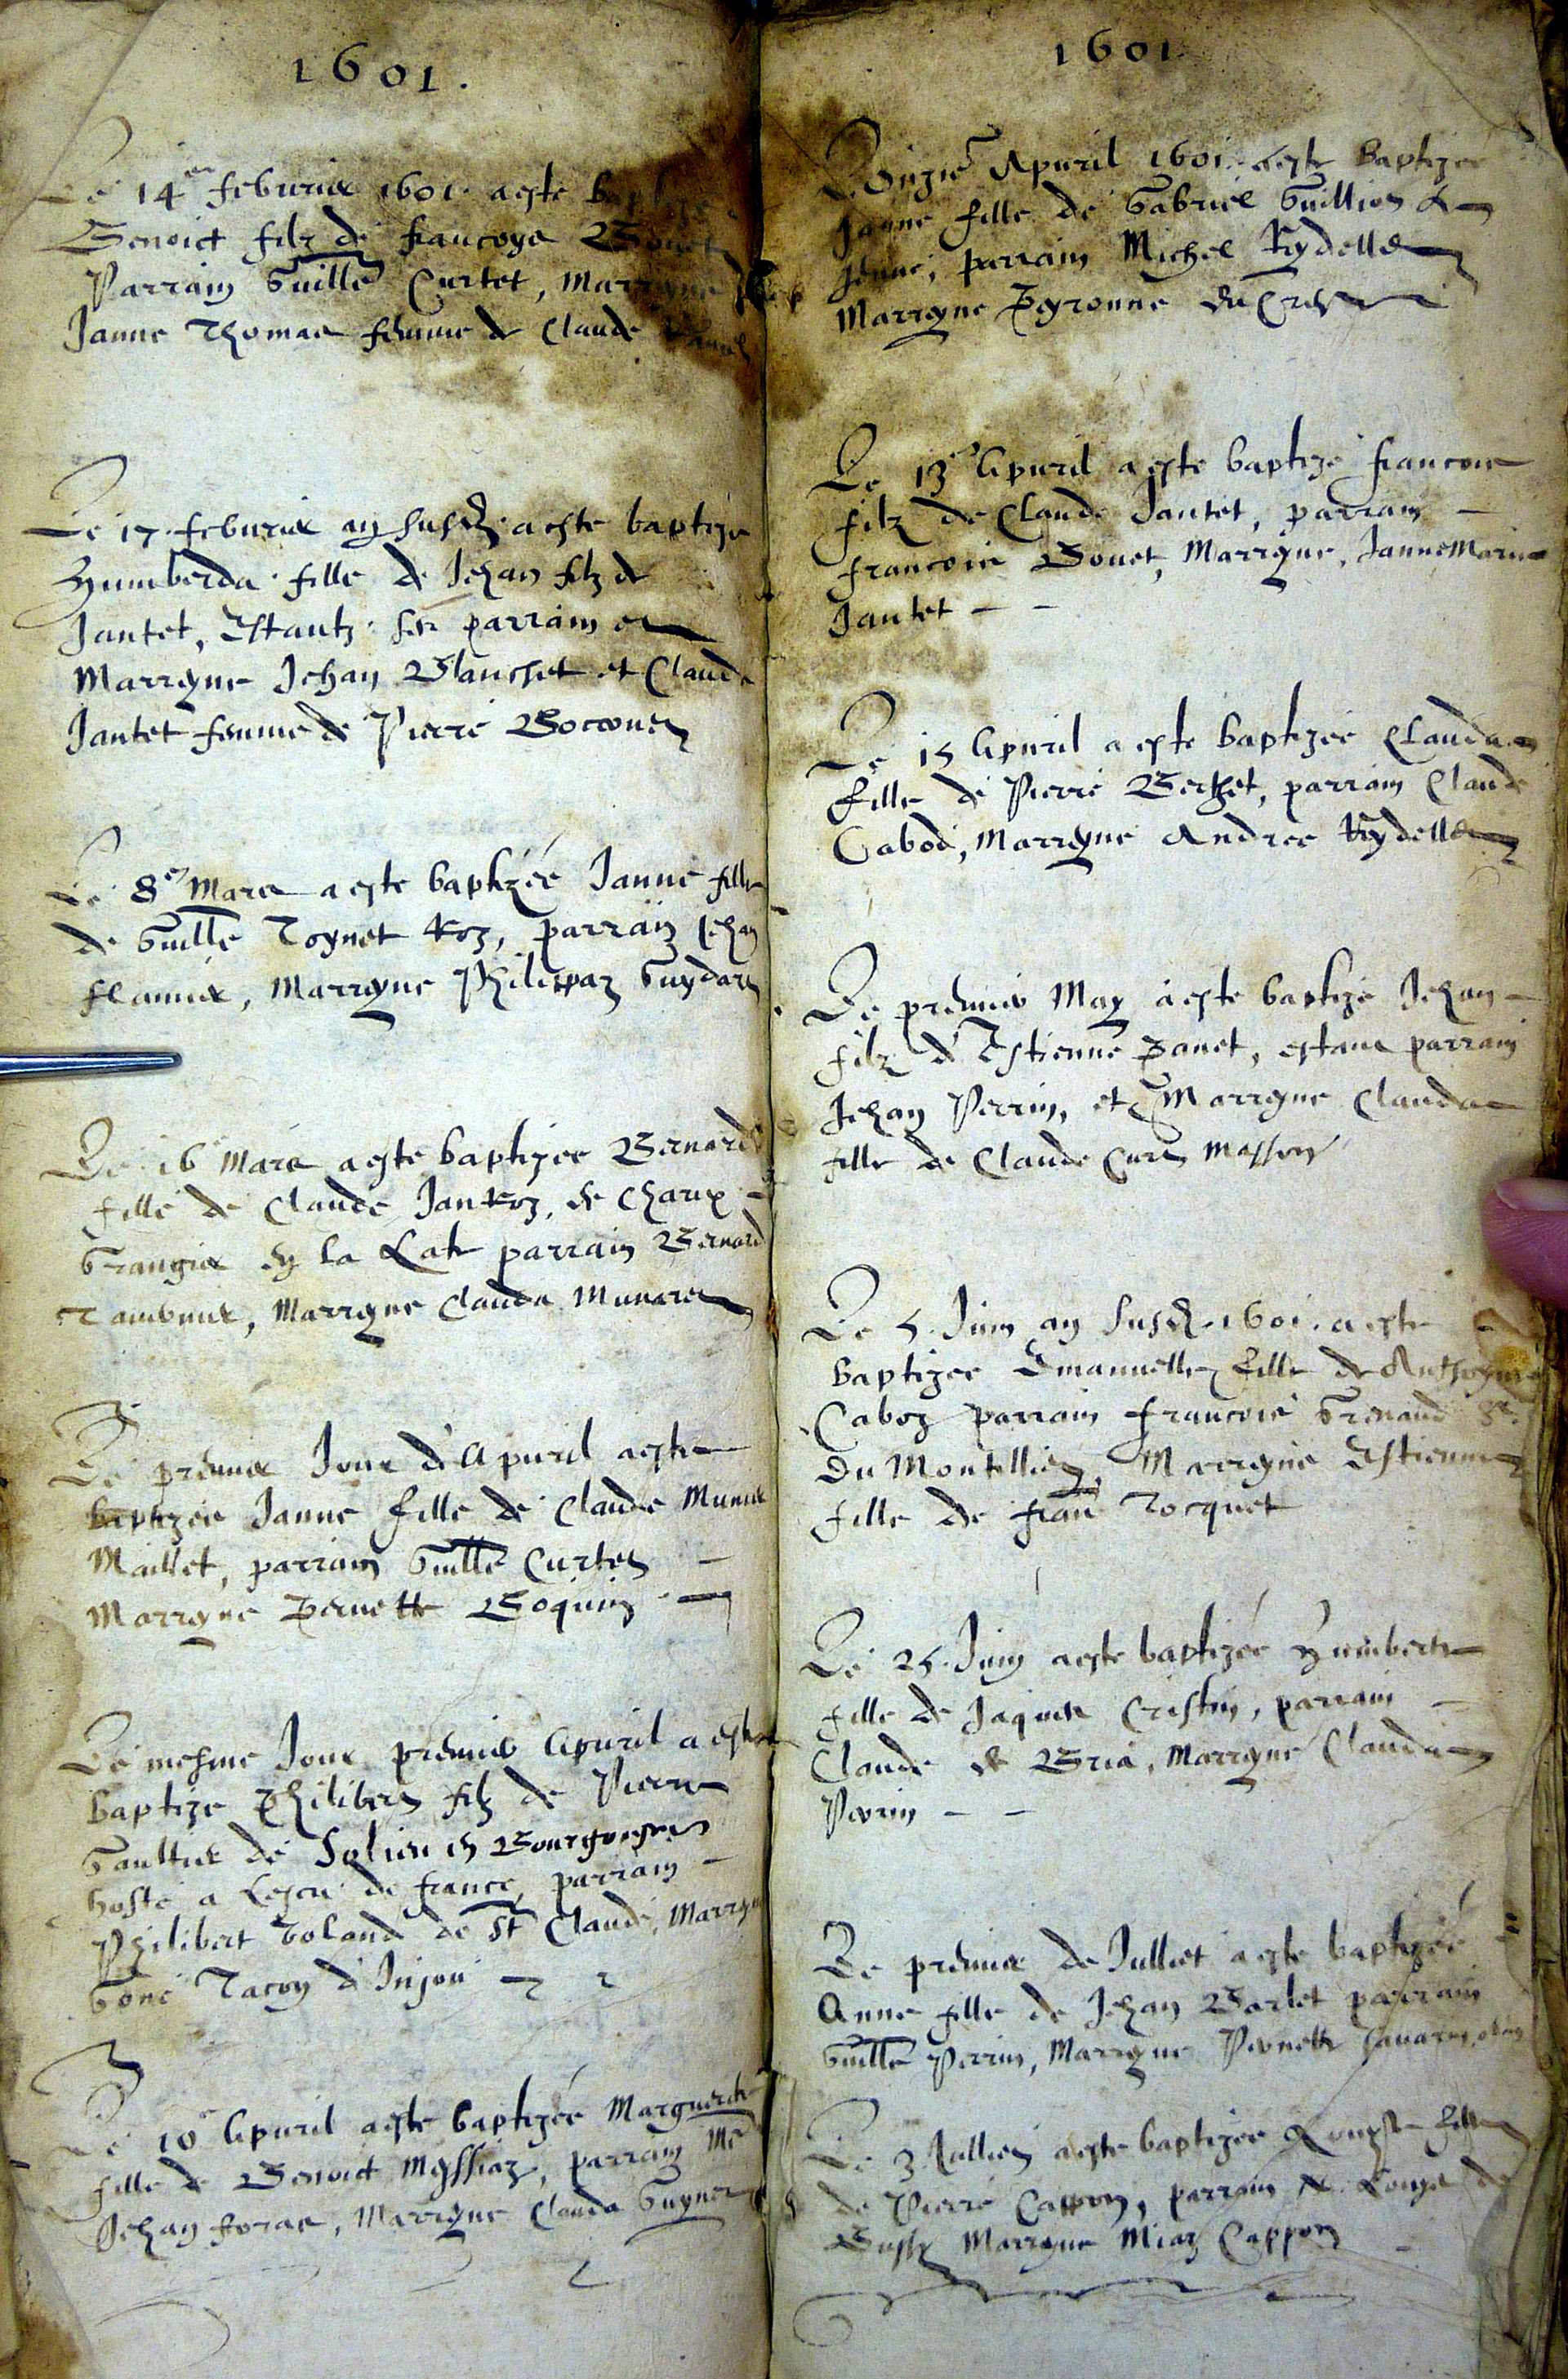 1601.
Le 14en feburier 1601. a este baptize
Benoict filz de francoys Bouet
Parrain Guille Curtet, Marrayne
Janne Thomas femme de Claude
Le 17. feburier an susd. a este baptize
Humberda fille de Jehan filz de
Jantet, Estantz ses parrain et
Marrayne Jehan Blanchet et Claude
Jantet femme de Pierre
Le 8en Mars a este baptizée Janne fille
de Guille Toynet parrain Jehan
Marrayne Guydard
Le 16 Mars a este baptizee Bernard
fille de Claude de Charix
Grangier en la parrain Bernard
Marrayne Clauda
Le premier Jour d'Apuril a este
baptizee Janne fille de Claude Munier
Maillet, parrain Guille Curtet
Marrayne Pernette Boquin
Le mesme Jour premier Apuril a este
baptize Philibert filz de Pierre
Gaultier de Solieu en Bourgongne
hoste a Lescu de france, parrain
Philibert de St Claude, Marrayne
Tacon d'Injou
Le 10e Apuril a este baptizée Marguerite
fille de Benoict Myssiaz, parrain Me
Jehan foras, Marrayne Clauda
1601.
Apuril 1601. a este Baptizee
Janne fille de Gabriel Guillion
parrain Michel Rydellet
Marrayne Peyronne du Crest
Le 13e Apuril a este baptize francois
filz de Claude Jantet, parrain
francois Bouet, Marrayne, Janne Marie
Jantet
Le 15 Apuril a este baptizée Clauda
fille de Pierre Berthet, parrain Claude
Cabod, Marrayne Andree Rydellet
Le premier May a este baptize Jehan
filz d'Estienne Panet, estant parrain
Jehan Perrin, et Marrayne Clauda
fille de Claude masson
Le 5. Juin an susd. 1601. a este
baptizee Emanuelle fille de Anthoyne
Caboz parrain francois Grenaud Sr.
Du Montellier, Marrayne Estienne
fille de fran Tocquet
Le 25. Juin a este baptizée Humberte
fille de Jaques Cristin, parrain
Claude de Bria, Marrayne Clauda
Perrin
Le premier de Julliet a este baptizée
Anne fille de Jehan Barlet parrain
Guille Perrin, Marrayne Pernette
Le 3 Julliet a este baptizee Louyse fille
de Pierre Cappon, parrain Louys de
Bussy Marrayne Miaz Cappon